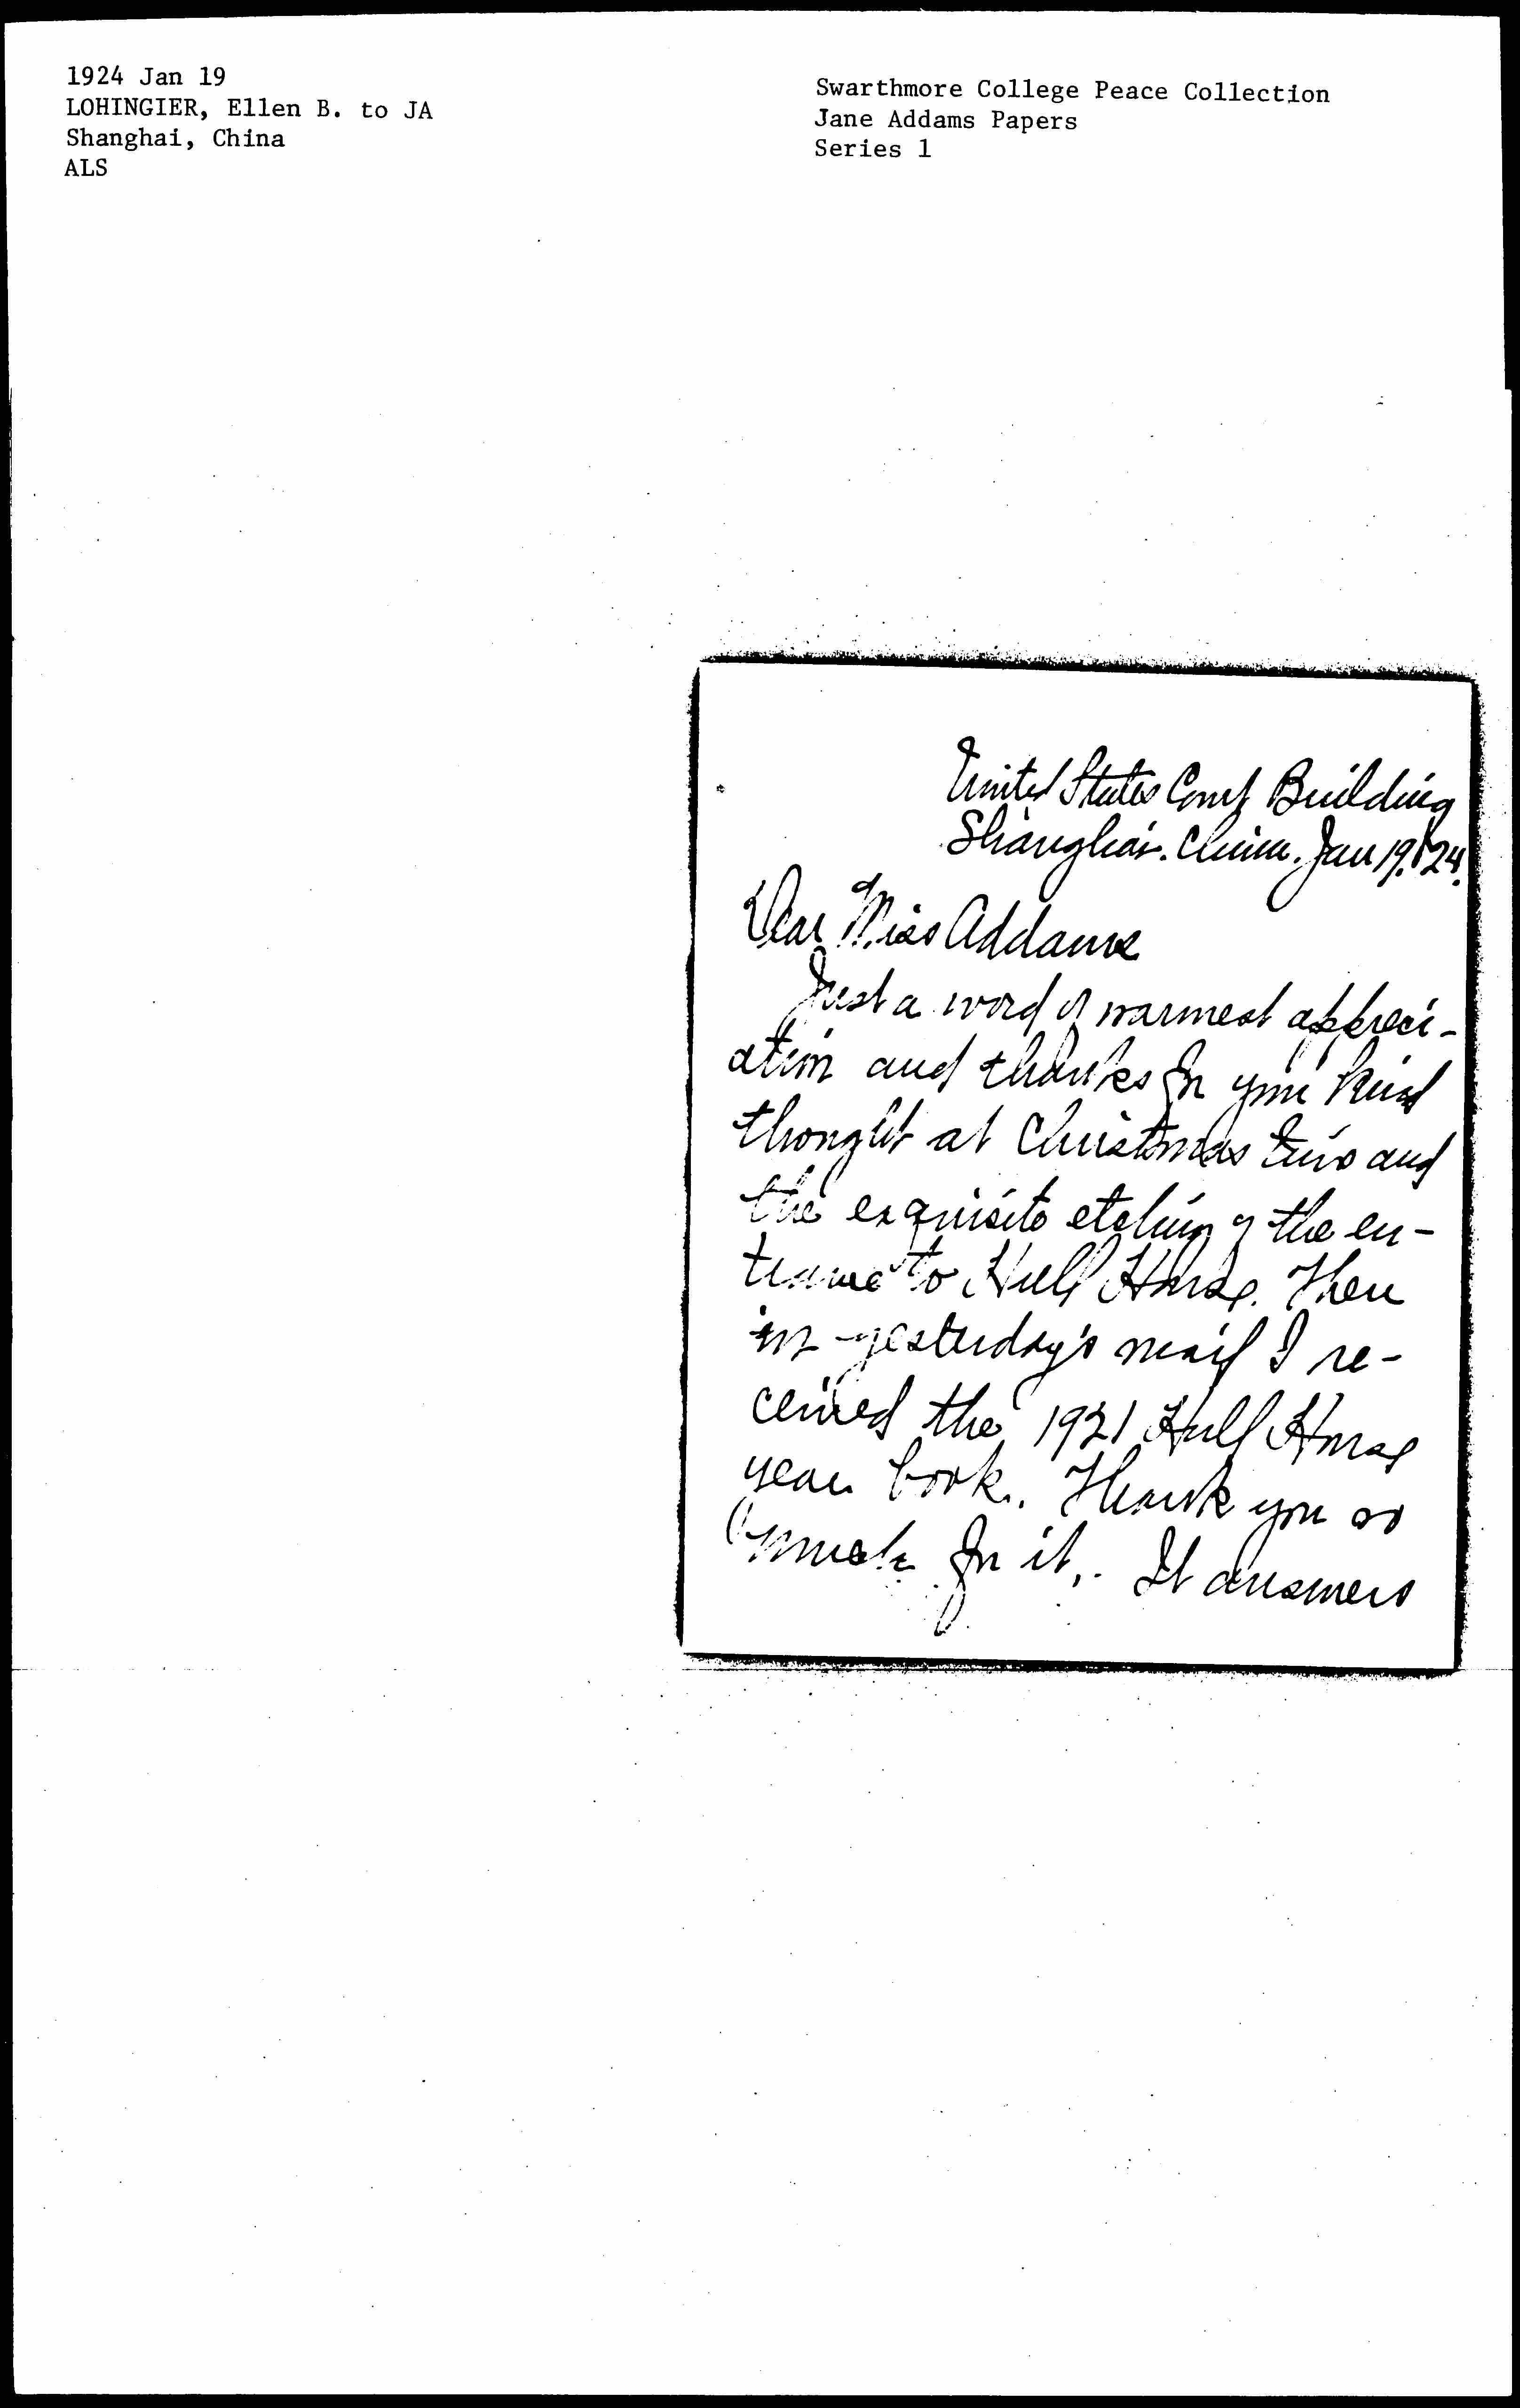 1924 Jan 19
LOHINGIER, Ellen B. to JA
Shanghai, China
ALS
Swarthmore College Peace Collection
Jane Addams Papers
Series 1
United States Court Building
Shanghai. China. Jan 19. '24.
Dear Miss Addams
Just a word of warmest appreci-
ation and thanks for your kind
thought at Christmas time and
the exquisite etching of the en-
trance to Hull House. Then
in yesterday's mail I re-
ceived the 1921 Hull House
year book. Thank you so
much for it. It answers